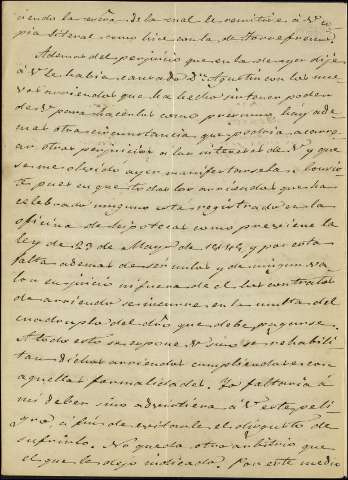 viendo la reseña de la cual le remitiré á V. co-
pia literal como hice con la de Torrefresno.
Ademas del perjuicio que en la de ayer dije
á V. le habia causado Dn. Agustin con los nue-
vos arriendos que ha hecho sin tener poder
de V. para hacerlos como presumo, hay ade-
mas otra circunstancia que podria acarre-
ar otros perjuicios á los intereses de V. y que
se me olvidó ayer manifestarsela. Consis-
te pues en que todos los arriendos que ha
celebrado ninguno está registrado en la
oficina de hipotecas como previene la
ley de 23 de Mayo de 1845 y por esta
falta ademas de ser nulos y de ningun va-
lor en juicio ni fuera de el los contratos
de arriendo se incurre en la multa del
cuadruplo del dro. que debe pagarse.
A todo esto se espone V. si no se rehabili-
tan dichos arriendos cumpliendose con
aquellas formalidades. Yo faltaria á
mi deber si no advirtiera á V. este peli-
gro á fin de evitarle el disgusto de
sufrirlo. No queda otro arbitrio que
el que le dejo indicado. Por este medio